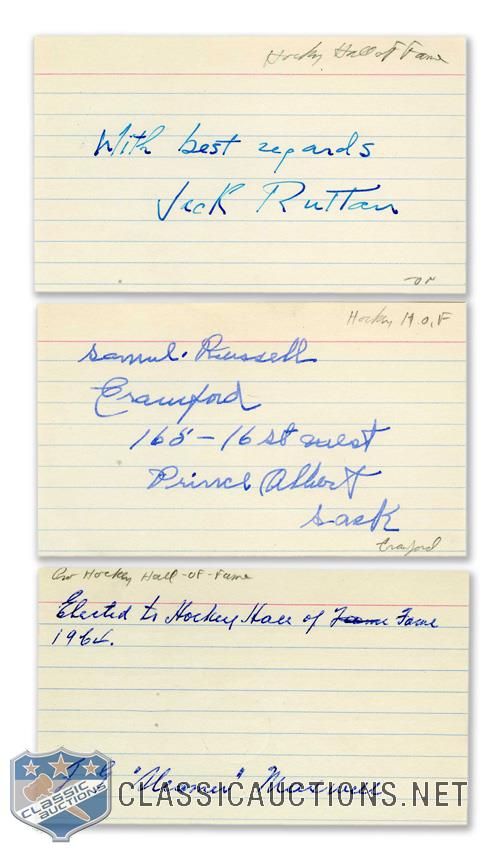 Hocky Hall of Fame
With best regards
Jack Ruttan
Hockey H.O.F
Samul. Russell
Crawford
165 - 16 St west
Prince Albert
Sask
Crawford
Hockey Hall-of-Fame
Elected to Hockey Hall of Fame Fame
1964.
"Steamer" Maxwell
CLASSIC
AUCTIONS
CLASSICAUCTIONS.NET